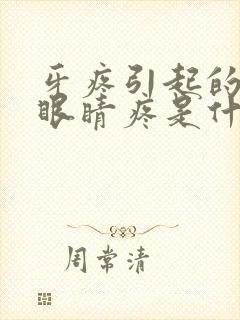 牙疼引起的
眼睛疼是什
周常清